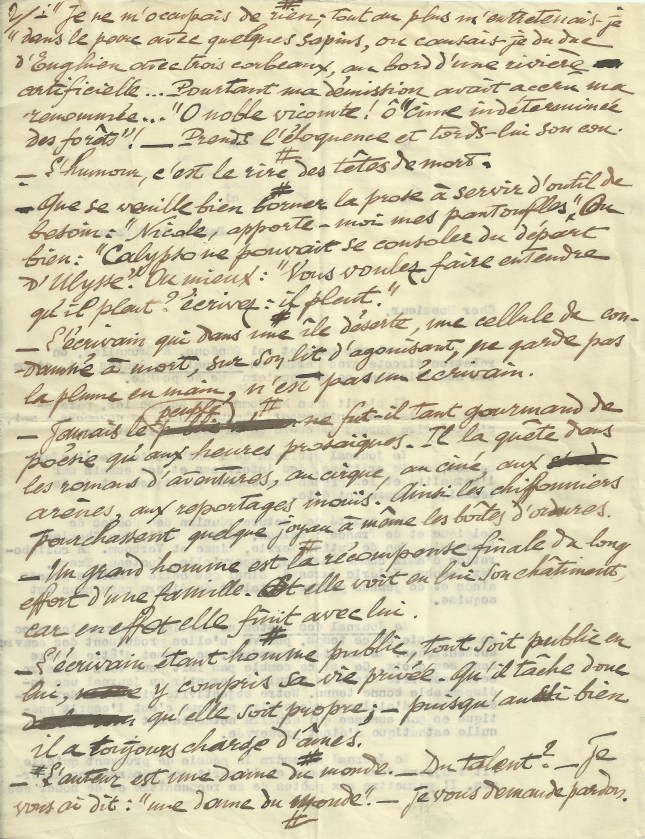 2/ i" Je ne m'occupais de rien; tout au plus m'entretenais-je
"dans le parc avec quelques sapins, ou causais-je du duc
d'Enghien avec trois corbeaux, au bord d'une rivière
artificielle... Pourtant ma démission avait accru ma
renommée..." O noble vicomte! ô "cime indéterminée
des forêts"! — Prends l'éloquence et tords-lui son cou.
#
— L'humour, c'est le rire des têtes de mort.
#
— Que se veuille bien borner la prose à servir d'outil de
besoin: "Nicole, apporte-moi mes pantoufles". Ou
bien: "Calypso ne pouvait se consoler du départ
d'Ulysse". Ou mieux: "Vous voulez faire entendre
qu'il pleut? écrivez: il pleut."
#
— L'écrivain qui dans une île déserte, une cellule de con-
-damné à mort, sur son lit d'agonisant, ne garde pas
la plume en main, n'est pas un écrivain.
#
— Jamais le peuple ne fut-il tant gourmand de
poésie qu'aux heures prosaïques. Il la quête dans
les romans d'aventures, au cirque, au ciné, aux
arènes, aux reportages inouïs. Ainsi les chiffonniers
pourchassent quelque joyau à même les boîtes d'ordures.
#
— Un grand homme est la récompense finale du long
effort d'une famille. Et elle voit en lui son châtiment,
car en effet elle finit avec lui.
#
— L'écrivain étant homme public, tout soit public en
lui, y compris sa vie privée. Qu'il tache donc
qu'elle soit propre; — puisqu'aussi bien
il a toujours charge d'âmes.
#
— L'auteur est une dame du monde. — Du talent? — Je
vous ai dit: "une dame du monde". — Je vous demande pardon.
#